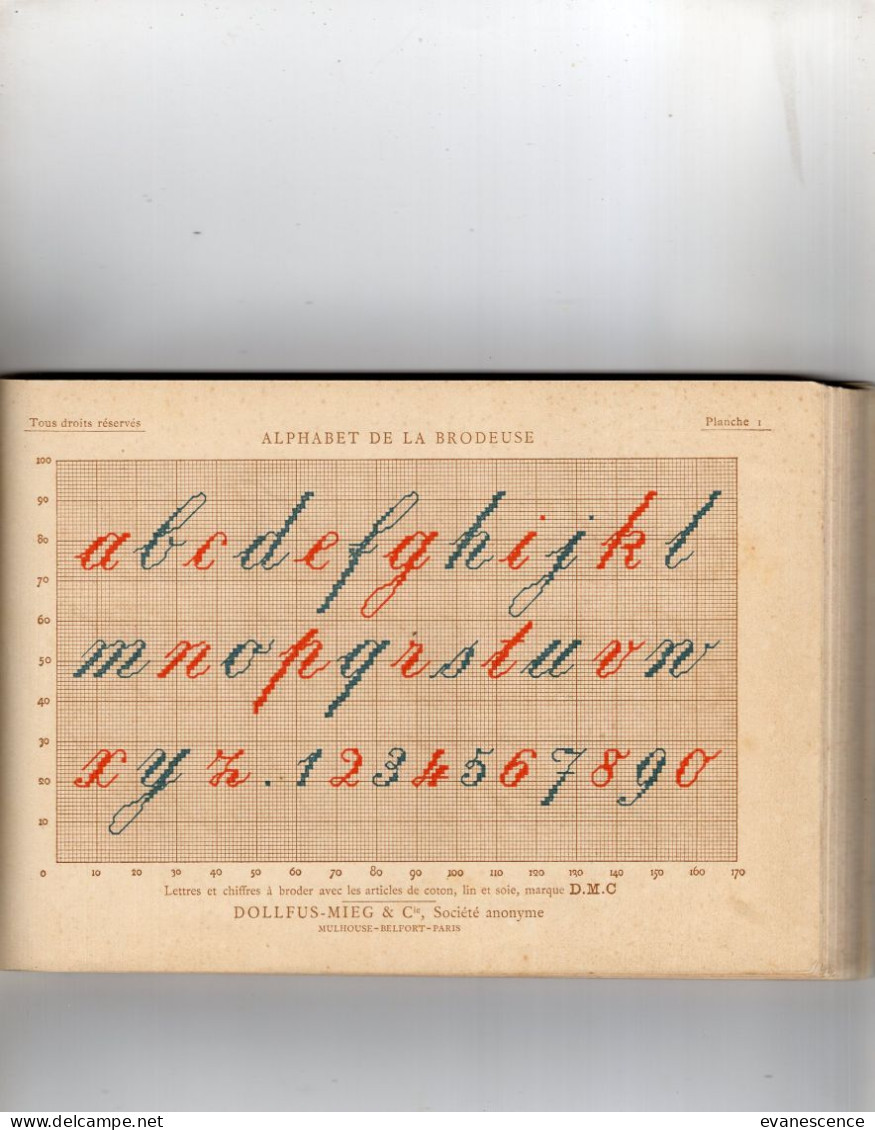 Tous droits réservés
Planche 1
ALPHABET DE LA BRODEUSE
100
90
80
70
60
50
40
30
20
10
a b c d e f g h i j k l
m n o p q r s t u v w
x y z . 1 2 3 4 5 6 7 8 9 0
0 10 20 30 40 50 60 70 80 90 100 110 120 130 140 150 160 170
Lettres et chiffres à broder avec les articles de coton, lin et soie, marque D.M.C
DOLLFUS-MIEG & Cie, Société anonyme
MULHOUSE-BELFORT-PARIS
evanescence